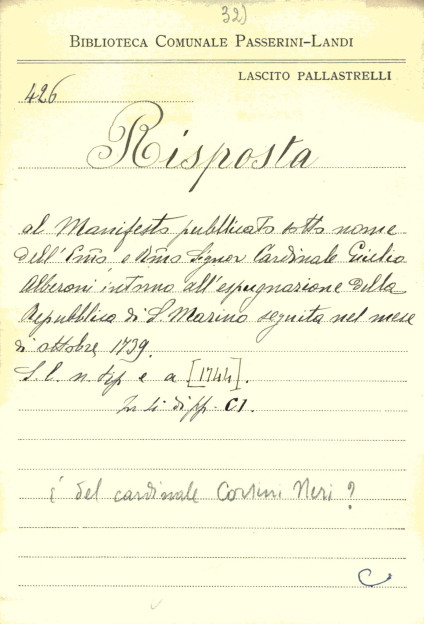 32)
BIBLIOTECA COMUNALE PASSERINI-LANDI
LASCITO PALLASTRELLI
426
Risposta
al Manifesto pubblicato sotto nome
dell' Emo e Rmo Signor Cardinale Giulio
Alberoni intorno all'espugnazione della
Repubblica di S. Marino seguita nel mese
di ottobre 1739.
S. l. n. tip e a [1744].
In 4 di pp. CI.
è del cardinale Corsini Neri?